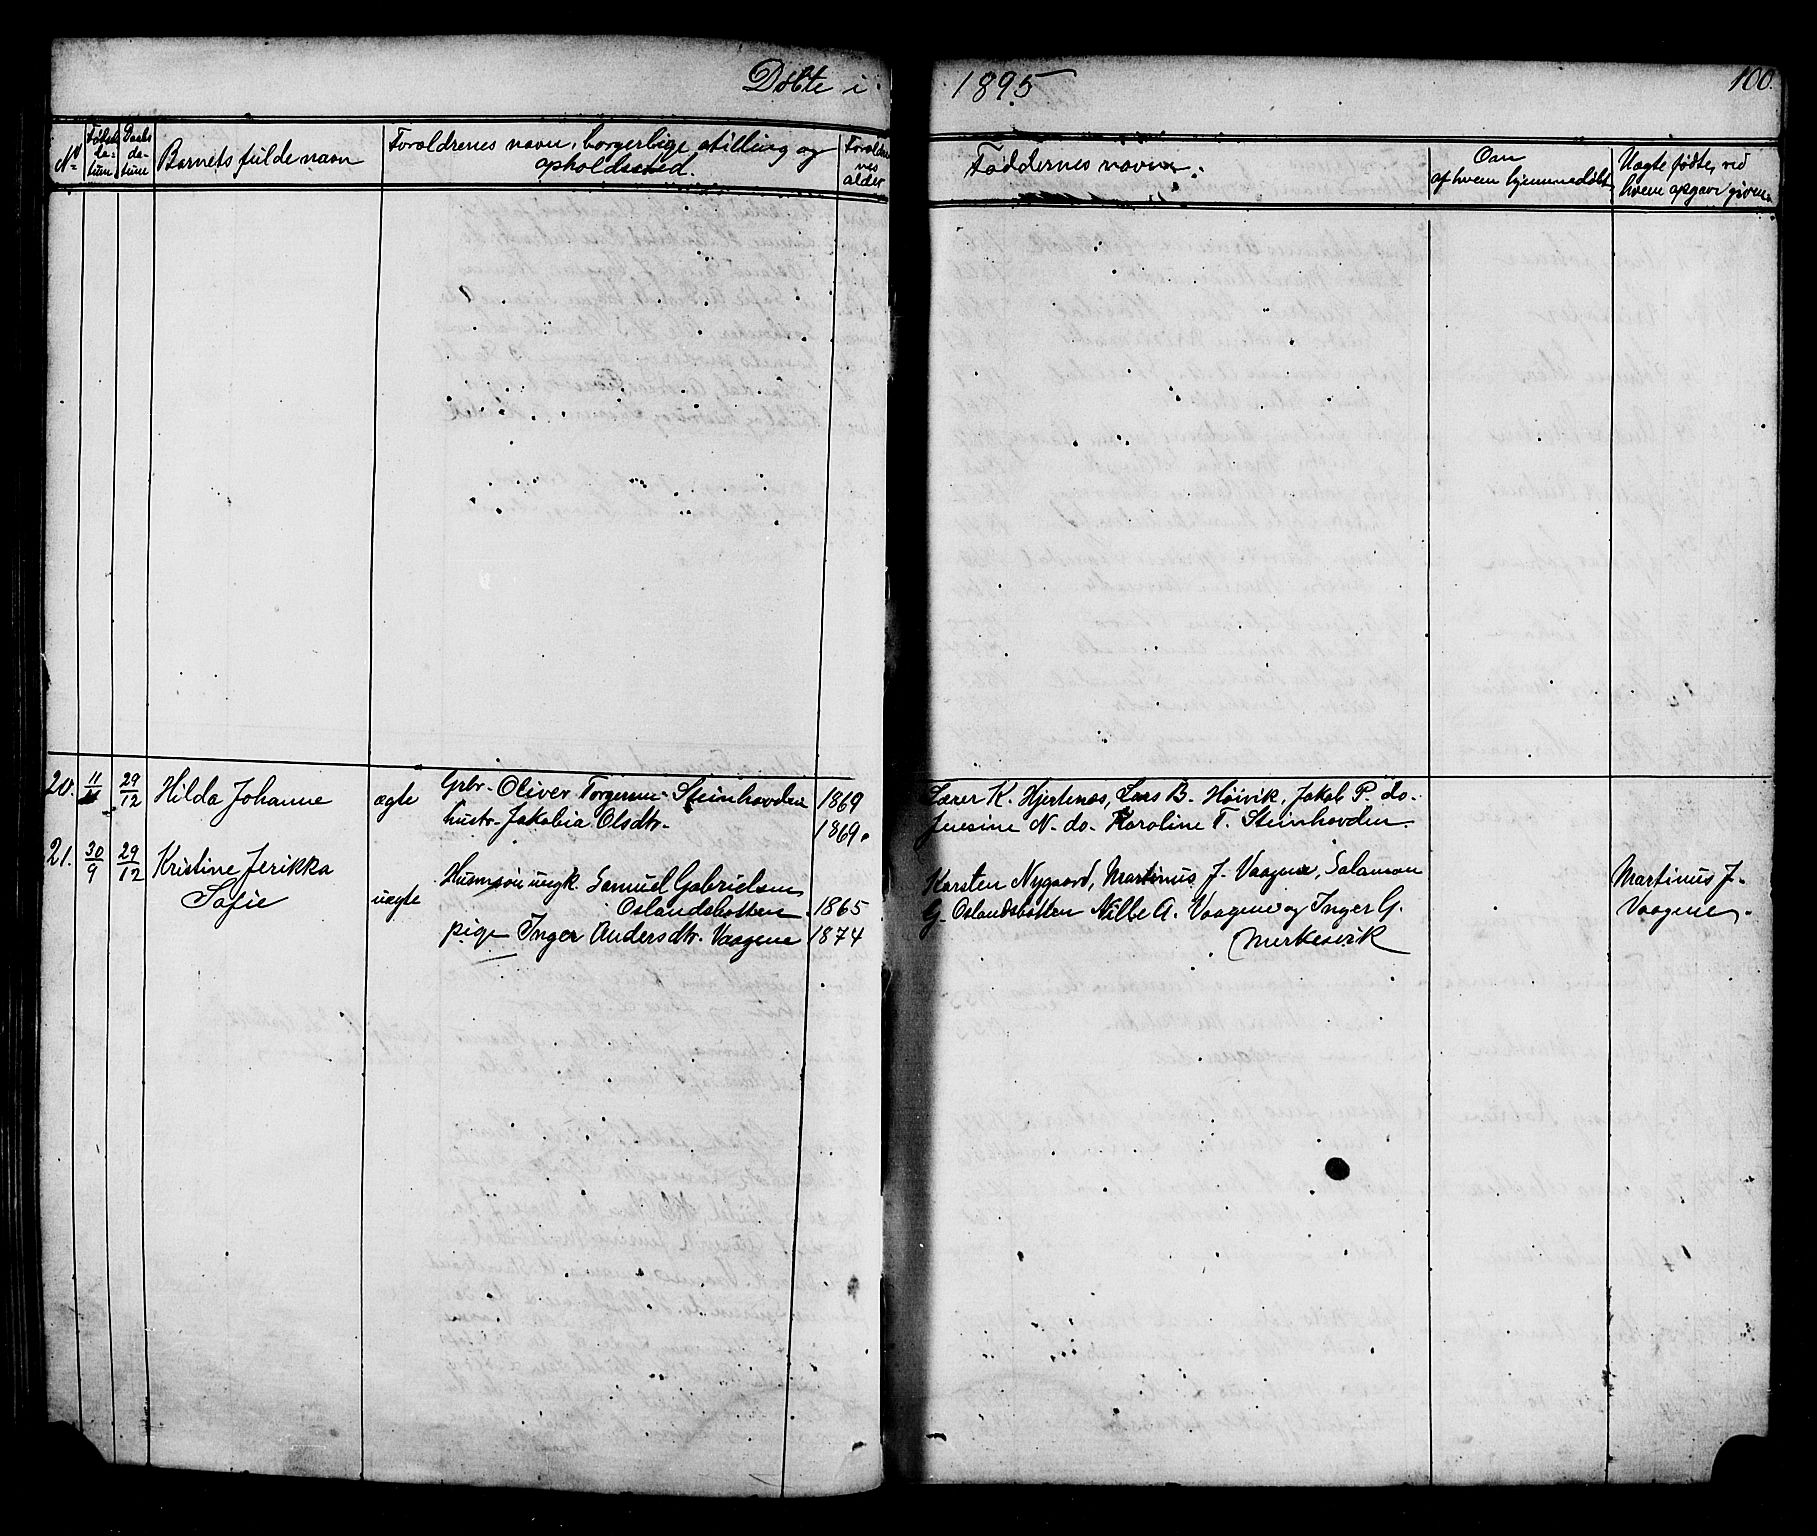 Döbte i 1895
100.
No
Fødsels da- tum
Daabs da- tum
Barnets fulde navn
Forældrenes navn, borgerlige stilling og
opholdssted.
Forældre
nes
alder
Faddernes navne.
Om
af hvem hjemmedøbt
Uægte fødte, ved
hvem opgave given.
20. 11/11 29/12 Hilda Johanne ægte Grbr. Oliver Torgersen Steinhovden 1869 Lærer K. Hjertenæs, Lars B. Höivik, Jakob P. do.
hustr. Jakobia Olsdtr. 1869. Jensine N. do. Karoline T. Steinhovden.
21. 30/9 29/12 Kristine Jerikka uægte Husmsön ungk. Samuel Gabrielsen Karsten Nygaard, Martinus J. Vaagene, Salamon Martinus J.
Sofie Oslandsbotten 1865 G. Oslandsbotten Nille A. Vaagene og Inger G. Vaagene.
pige Inger Andersdtr. Vaagene 1874 Mjerkesvik